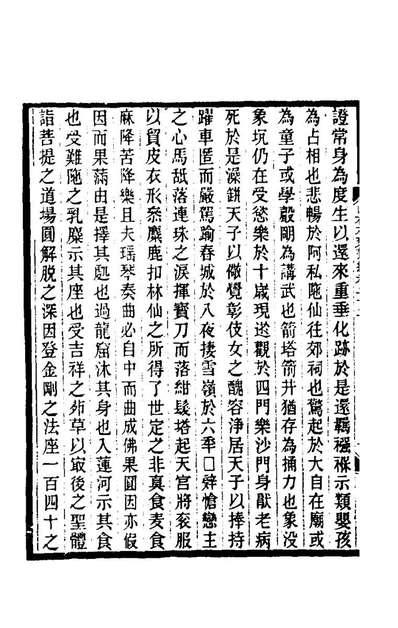 證常身為度生以還來重垂化跡於是還羈襁褓示類嬰孩
為占相也悲暢於阿私陁仙往郊祠也驚起於大自在廟或
為童子或學觳𮤲為講武也箭塔箭井猶存為捔力也象沒
象坑仍在受慾樂於十嵗現遊觀於四門樂沙門身猒老病
死於是澡缾天子以儆覺彰伎女之醜容淨居天子以捧持
躍車匿而嚴駕踰春城於八夜捿雪嶺於六年□辭愴戀主
之心馬䑛落連珠之淚揮寶刀而落紺髮塔起天宮將衮服
以貿皮衣形叅麋鹿扣林仙之所得了世定之非真食麦食
麻降苦降樂且夫瑶琴奏曲必自中而曲成佛果圓因亦假
因而果蒲由是擇其處也過龍窟沐其身也入蓮河示其食
也受難陁之乳麋示其座也受吉祥之茆草以㝡後之聖體
詣菩提之道場圓解脱之深因登金剛之法座一百四十之